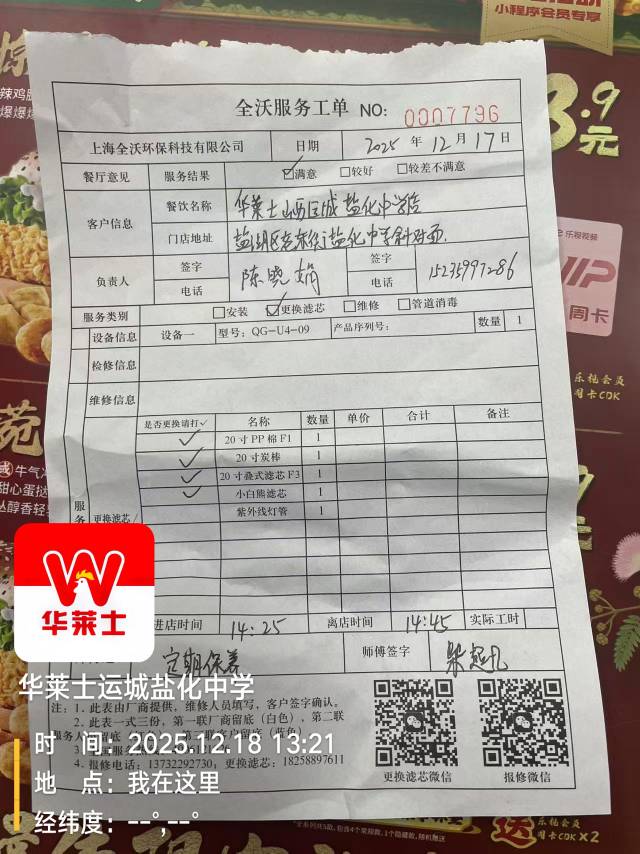 小程序会员专享
9元
全沃服务工单 NO: 0007796
上海全沃环保科技有限公司 日期 2025年12月17日
餐厅意见 服务结果 ☑满意 □较好 □较差不满意
客户信息 餐饮名称 华莱士山西运城盐化中学店
门店地址 盐湖区 盐化中学斜对面
负责人 签字 陈晓娟 签字
电话 电话 15235997286
服务类别 □安装 ☑更换滤芯 □维修 □管道消毒
设备信息 设备一 型号: QG-U4-09 产品序列号: 数量 1
检修信息
维修信息
是否更换请打✓ 名称 数量 单价 合计 备注
✓ 20寸PP棉F1 1
✓ 20寸炭棒 1
✓ 20寸叠式滤芯F3 1
✓ 小白熊滤芯 1
紫外线灯管 1
更换滤芯
进店时间 14:25 离店时间 14:45 实际工时
定期保养 师傅签字
注: 1. 此表由厂商提供, 维修人员填写, 客户签字确认。
2. 此表一式三份, 第一联厂商留底(白色), 第二联
4. 报修电话: 13732292730; 更换滤芯: 18258897611
更换滤芯微信 报修微信
VIP
周卡
W
华莱士
华莱士运城盐化中学
时 间: 2025.12.18 13:21
地 点: 我在这里
经纬度: --°,--°